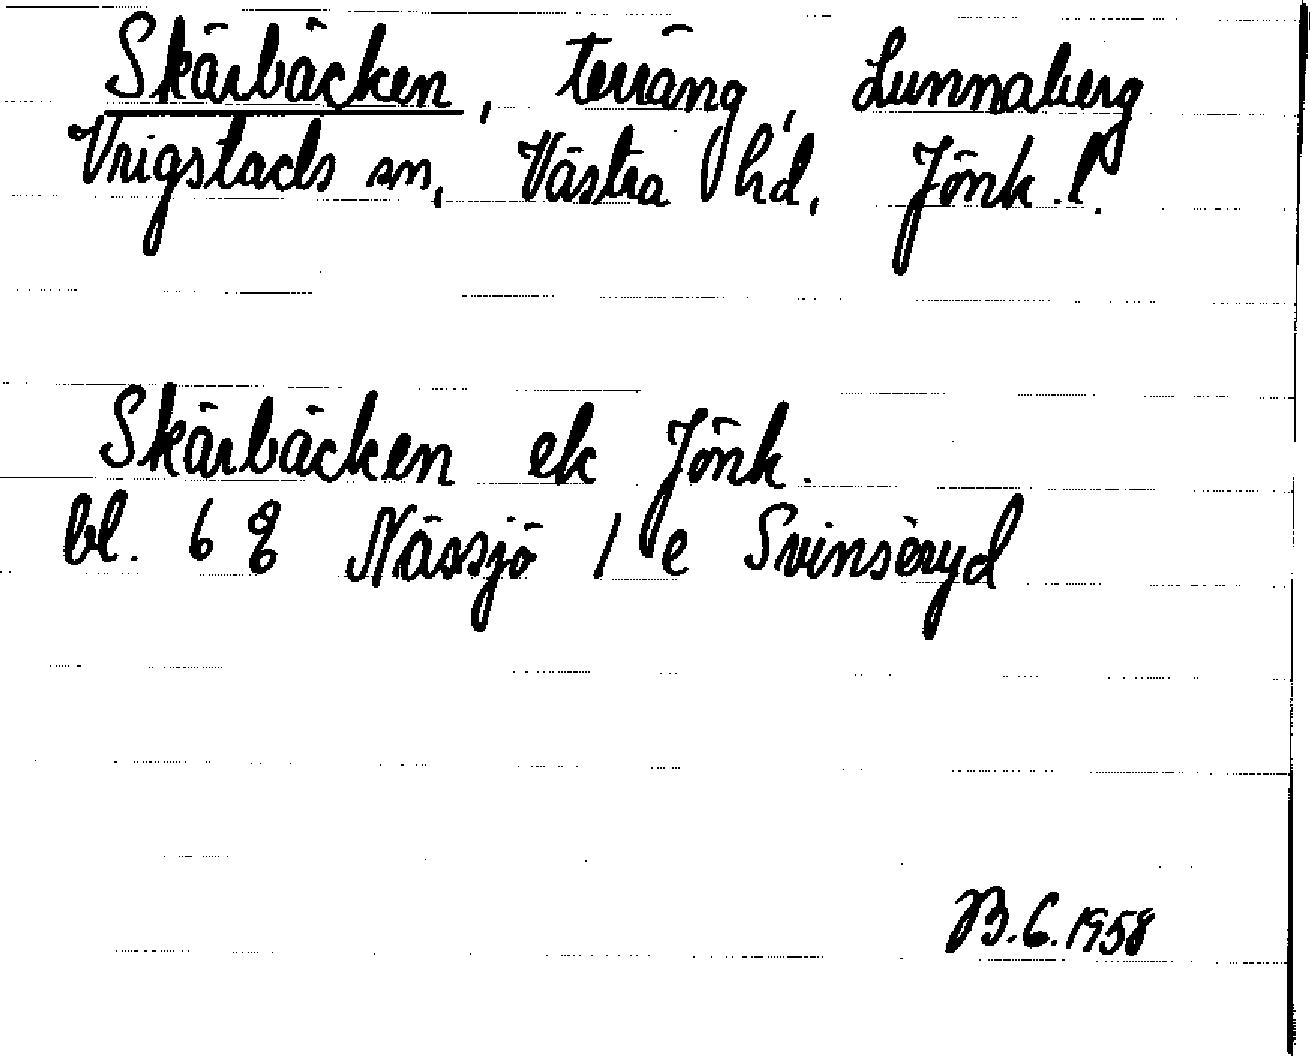 Skärbäcken, terräng, Lunnaberg
Vrigstads sn, Västra hd, Jönk. l.
Skärbäcken ek Jönk.
bl. 6 E Nässjö 1 e Svinseryd
B.G.1958